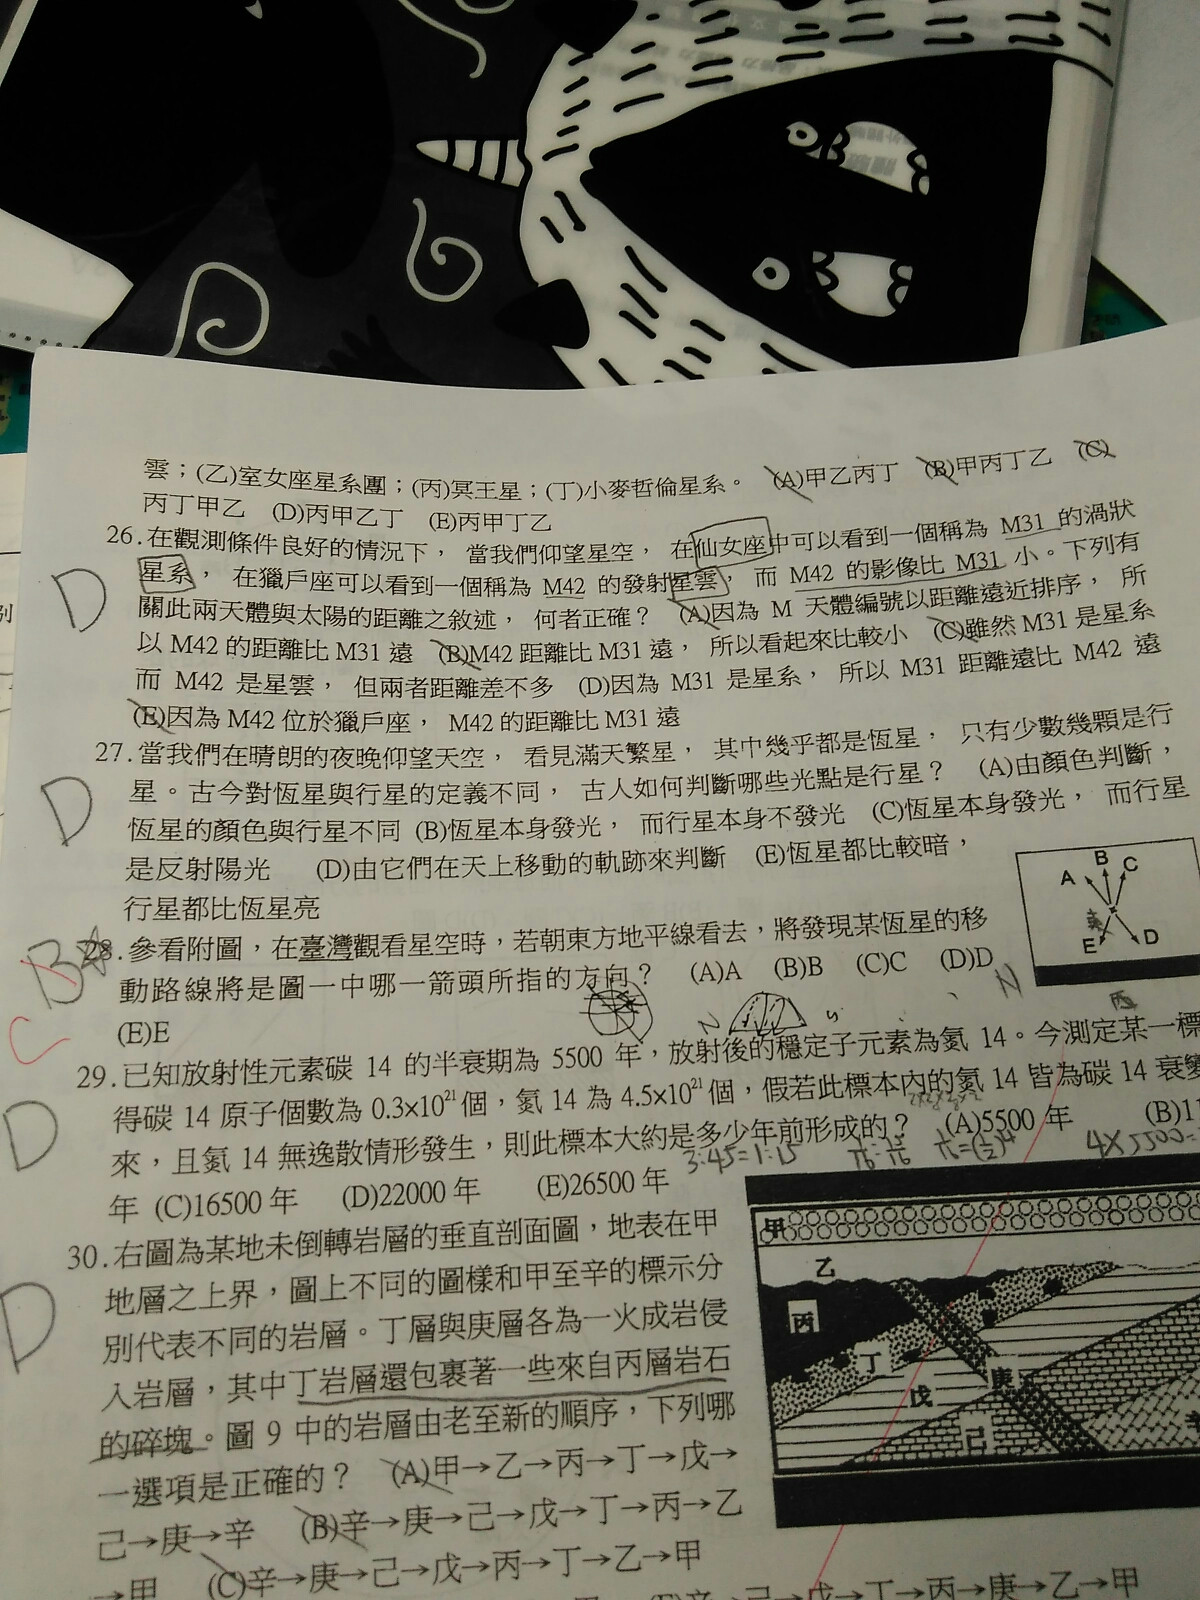 雲；(乙)室女座星系團；(丙)冥王星；(丁)小麥哲倫星系。 (A)甲乙丙丁 (B)甲丙丁乙 (C)
丙丁甲乙 (D)丙甲乙丁 (E)丙甲丁乙
26.在觀測條件良好的情況下， 當我們仰望星空， 在仙女座中可以看到一個稱為 M31 的渦狀
星系， 在獵戶座可以看到一個稱為 M42 的發射星雲， 而 M42 的影像比 M31 小。下列有
關此兩天體與太陽的距離之敘述， 何者正確？ (A)因為 M 天體編號以距離遠近排序， 所
以 M42 的距離比 M31 遠 (B)M42 距離比 M31 遠， 所以看起來比較小 (C)雖然 M31 是星系
而 M42 是星雲， 但兩者距離差不多 (D)因為 M31 是星系， 所以 M31 距離遠比 M42 遠
(E)因為 M42 位於獵戶座， M42 的距離比 M31 遠
D
27.當我們在晴朗的夜晚仰望天空， 看見滿天繁星， 其中幾乎都是恆星， 只有少數幾顆是行
星。古今對恆星與行星的定義不同， 古人如何判斷哪些光點是行星？ (A)由顏色判斷，
恆星的顏色與行星不同 (B)恆星本身發光， 而行星本身不發光 (C)恆星本身發光， 而行星
是反射陽光 (D)由它們在天上移動的軌跡來判斷 (E)恆星都比較暗，
行星都比恆星亮
D
A B C
E D
28.參看附圖，在臺灣觀看星空時，若朝東方地平線看去，將發現某恆星的移
動路線將是圖一中哪一箭頭所指的方向？ (A)A (B)B (C)C (D)D
(E)E
B
C
N
N
29.已知放射性元素碳 14 的半衰期為 5500 年，放射後的穩定子元素為氮 14。今測定某一標
得碳 14 原子個數為 0.3×10²¹個，氮 14 為 4.5×10²¹個，假若此標本內的氮 14 皆為碳 14 衰變
來，且氮 14 無逸散情形發生，則此標本大約是多少年前形成的？ (A)5500 年 (B)11
年 (C)16500 年 (D)22000 年 (E)26500 年
D
3:45=1:15
4×5500=
30.右圖為某地未倒轉岩層的垂直剖面圖，地表在甲
地層之上界，圖上不同的圖樣和甲至辛的標示分
別代表不同的岩層。丁層與庚層各為一火成岩侵
入岩層，其中丁岩層還包裹著一些來自丙層岩石
的碎塊。圖 9 中的岩層由老至新的順序，下列哪
一選項是正確的？ (A)甲→乙→丙→丁→戊→
己→庚→辛 (B)辛→庚→己→戊→丁→丙→乙
→甲 (C)辛→庚→己→戊→丙→丁→乙→甲
辛→己→戊→丁→丙→庚→乙→甲
D
甲
乙
丙
丁
戊
庚
己
辛